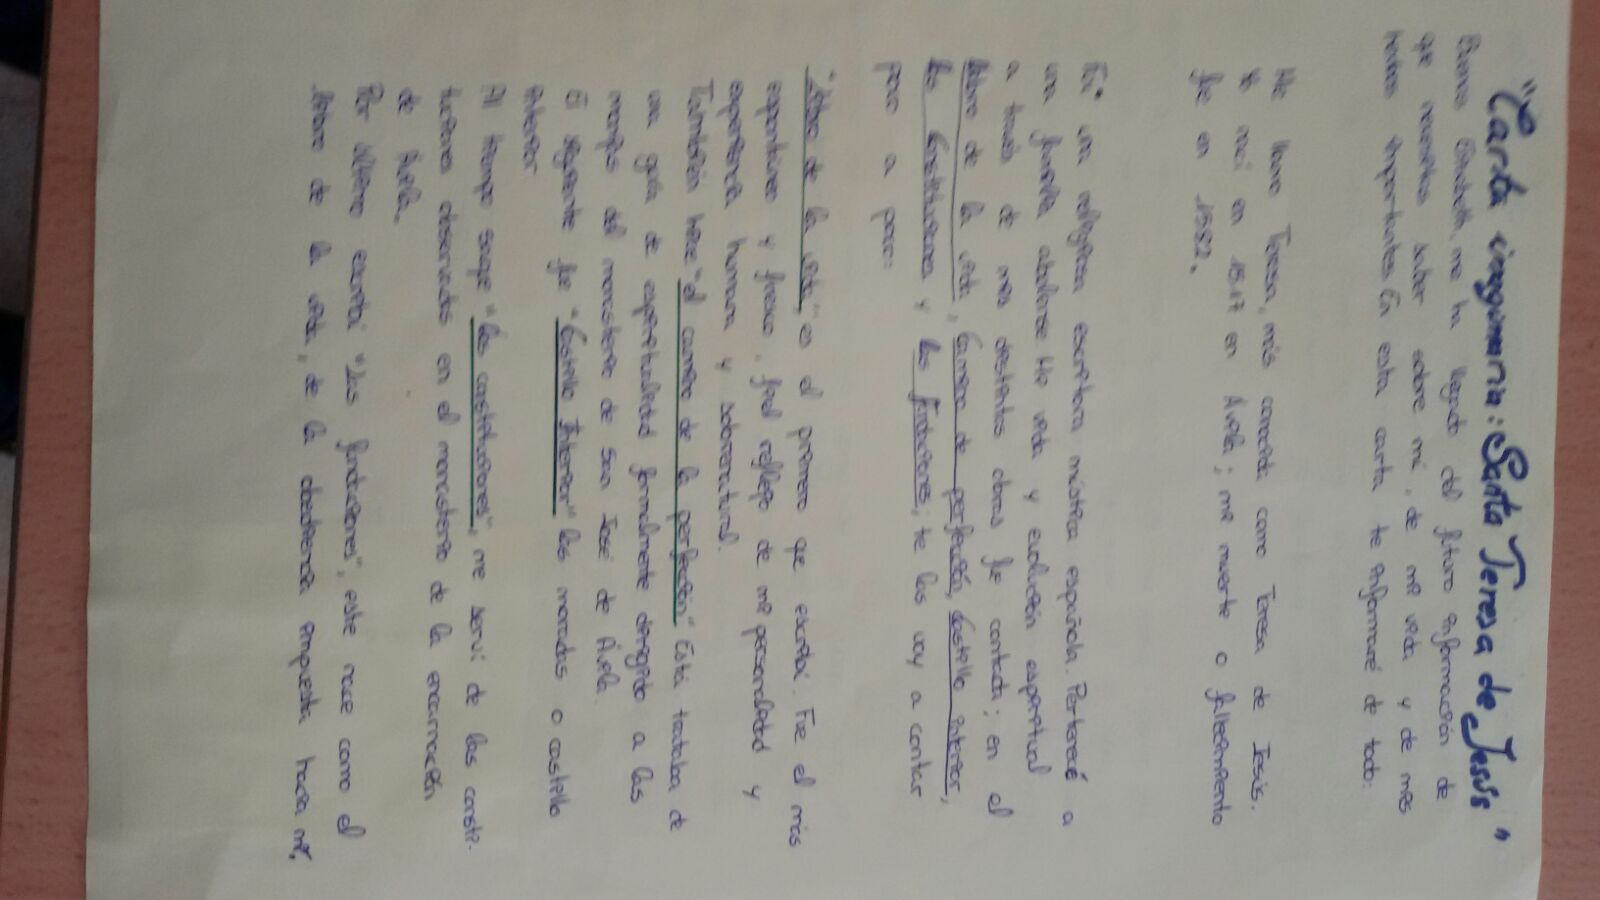 "Carta imaginaria: Santa Teresa de Jesús"
Buenas Elisabeth, me ha llegado del futuro información de
que necesitas saber sobre mí, de mi vida y de mis
hechos importantes. En esta carta te informaré de todo:
Me llamo Teresa, más conocida como Teresa de Jesús.
Yo nací en 1517 en Ávila; mi muerte o fallecimiento
fue en 1582.
Fui una religiosa escritora mística española. Pertenecí a
una familia abulense. Mi vida y evolución espiritual
a través de mis distintas obras fue contada; en el
libro de la vida, Camino de perfección, Castillo interior,
las Constituciones y las fundaciones, te las voy a contar
paso a paso:
"Libro de la vida", es el primero que escribí. Fue el más
espontáneo y fresco, fiel reflejo de mi personalidad y
experiencia humana y sobrenatural.
También hice "el camino de la perfección" Está tratada de
una guía de espiritualidad formalmente dirigido a las
monjas del monasterio de San José de Ávila.
El siguiente fue "Castillo Interior" las moradas o castillo
interior.
Al tiempo surge "Las constituciones", me serví de las consti-
tuciones observadas en el monasterio de la encarnación
de Ávila.
Por último escribí "Las fundaciones", este nace como el
libro de la vida, de la obediencia impuesta hacia mí,